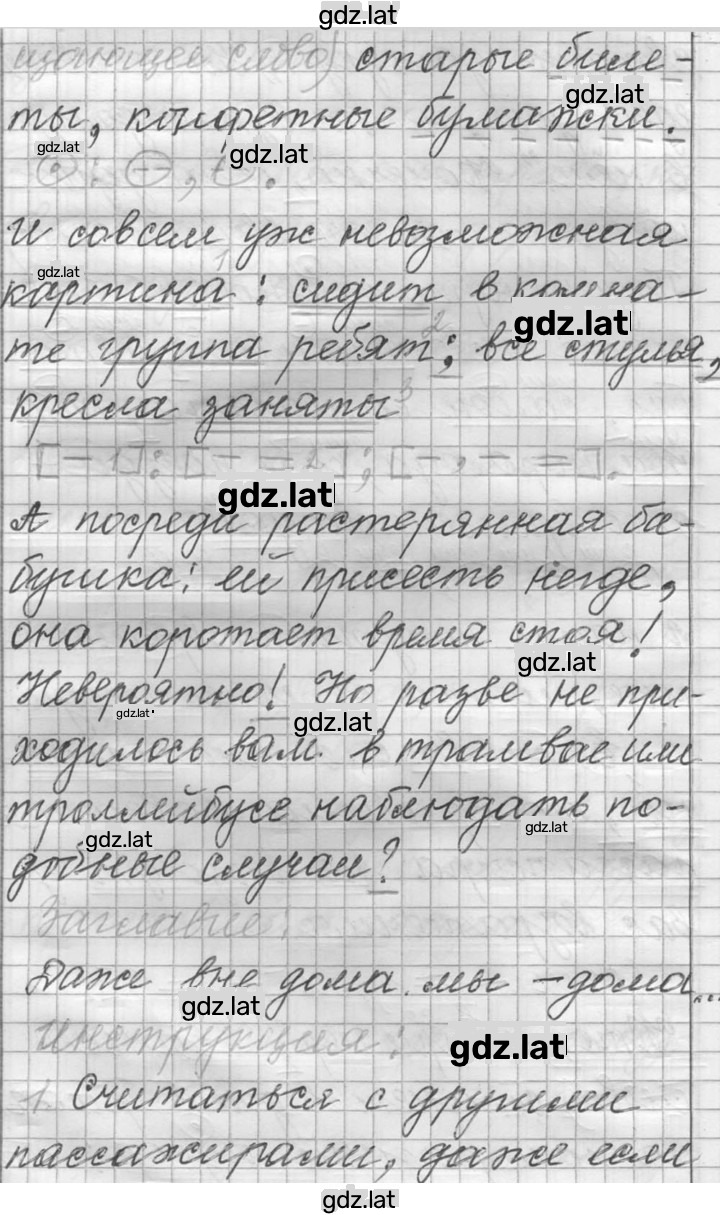 gdz.lat
щающее слово) старые биле-
gdz.lat
ты, конфетные бумажки.
gdz.lat
gdz.lat
И совсем уж невозможная
1
gdz.lat
картина: сидит в комна-
gdz.lat
те группа ребят2; все стулья,
кресла заняты3
[— 1]: [— = 2]; [—, — =].
gdz.lat
А посреди растерянная ба-
бушка: ей присесть негде,
она коротает время стоя!
gdz.lat
Невероятно! Но разве не при-
gdz.lat
gdz.lat
ходилось вам в трамвае или
троллейбусе наблюдать по-
gdz.lat
gdz.lat
добные случаи?
Заглавие:
Даже вне дома мы – дома...
gdz.lat
Инструкция:
gdz.lat
1. Считаться с другими
пассажирами, даже если
gdz.lat